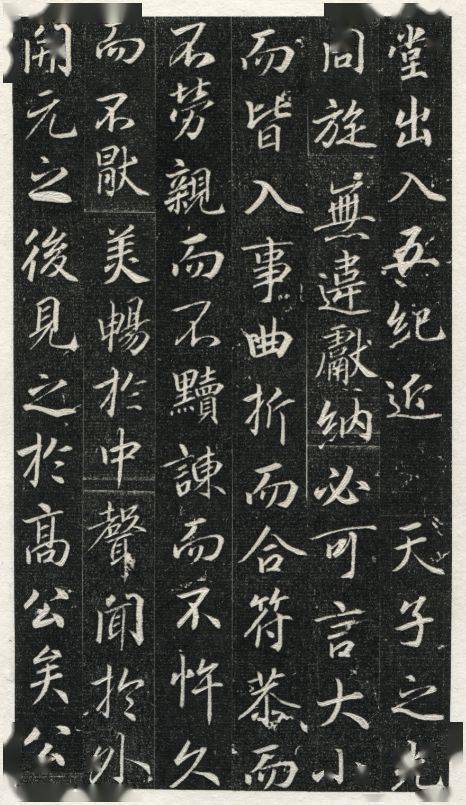 堂出入五紀近 天子之光
周旋無違獻納必可言大小
而皆入事曲折而合符恭而
不勞親而不黷諫而不忤久
而不猒美暢於中聲聞於外
開元之後見之於高公矣公